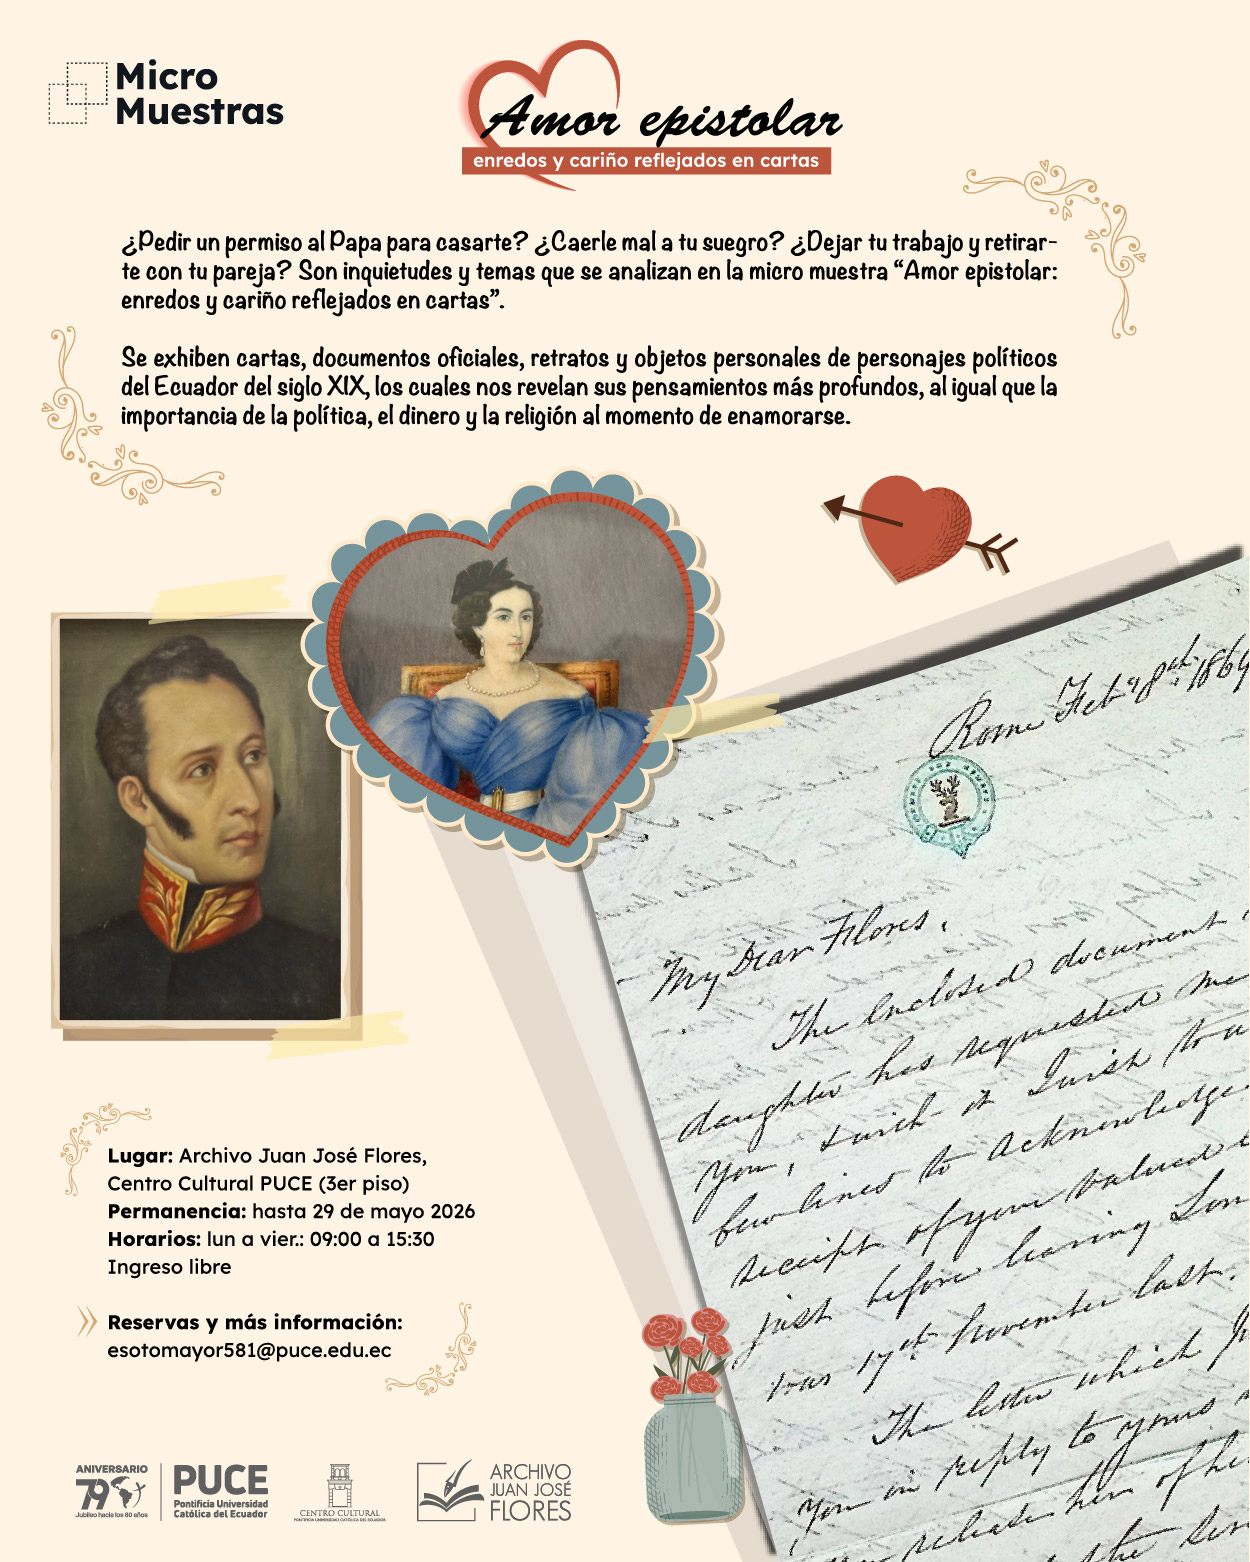 Micro
Muestras
Amor epistolar
enredos y cariño reflejados en cartas
¿Pedir un permiso al Papa para casarte? ¿Caerle mal a tu suegro? ¿Dejar tu trabajo y retirar-
te con tu pareja? Son inquietudes y temas que se analizan en la micro muestra “Amor epistolar:
enredos y cariño reflejados en cartas”.
Se exhiben cartas, documentos oficiales, retratos y objetos personales de personajes políticos
del Ecuador del siglo XIX, los cuales nos revelan sus pensamientos más profundos, al igual que la
importancia de la política, el dinero y la religión al momento de enamorarse.
Rome Feb 8th 1864
My Dear Flores,
The enclosed document
daughter has requested me
you, with it I wish to
few lines to acknowledge
receipt of your valued
just before leaving
was 17th November last.
The letter which
you in reply to yours
release him of
Lugar: Archivo Juan José Flores,
Centro Cultural PUCE (3er piso)
Permanencia: hasta 29 de mayo 2026
Horarios: lun a vier.: 09:00 a 15:30
Ingreso libre
Reservas y más información:
esotomayor581@puce.edu.ec
ANIVERSARIO
79
Jubileo hacia los 80 años
PUCE
Pontificia Universidad
Católica del Ecuador
CENTRO CULTURAL
PONTIFICIA UNIVERSIDAD CATÓLICA DEL ECUADOR
ARCHIVO
JUAN JOSÉ
FLORES